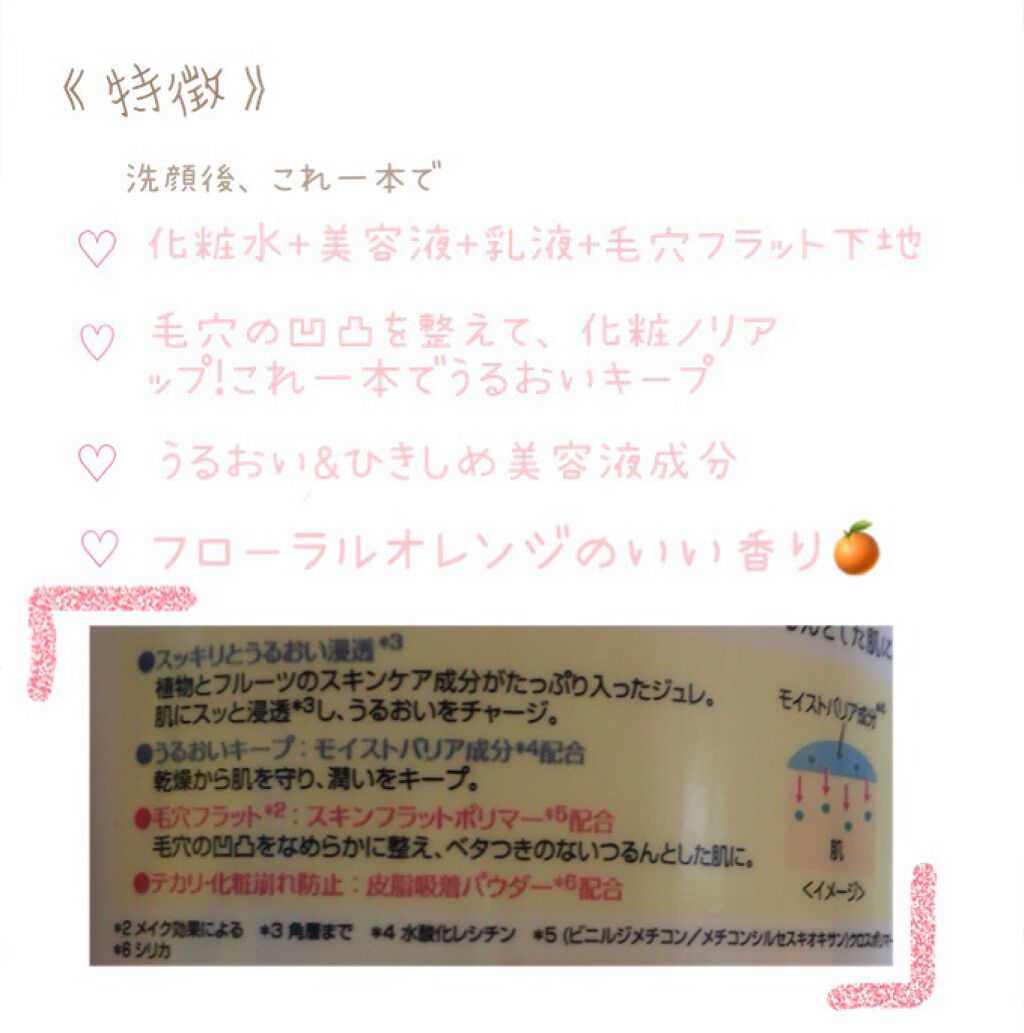 《特徴》
洗顔後、これ一本で
♡ 化粧水+美容液+乳液+毛穴フラット下地
♡ 毛穴の凹凸を整えて、化粧ノリア
ップ!これ一本でうるおいキープ
♡ うるおい&ひきしめ美容液成分
♡ フローラルオレンジのいい香り🍊
るんとした肌に
●スッキリとうるおい浸透*3
植物とフルーツのスキンケア成分がたっぷり入ったジュレ。
肌にスッと浸透*3し、うるおいをチャージ。
モイストバリア成分*4
●うるおいキープ：モイストバリア成分*4配合
乾燥から肌を守り、潤いをキープ。
●毛穴フラット*2：スキンフラットポリマー*5配合
毛穴の凹凸をなめらかに整え、ベタつきのないつるんとした肌に。
肌
●テカリ・化粧崩れ防止：皮脂吸着パウダー*6配合
<イメージ>
*2 メイク効果による *3 角層まで *4 水酸化レシチン *5 (ビニルジメチコン／メチコンシルセスキオキサン)クロスポリマー
*6 シリカ